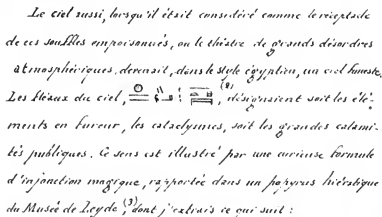 Le ciel aussi, lorsqu'il était considéré comme le réceptacle
de ces souffles empoisonnés, ou le théâtre de grands désordres
atmosphériques, devenait, dans le style égyptien, un ciel funeste.
Les fléaux du ciel, (2), désignaient soit les élé-
ments en fureur, les cataclysmes, soit les grandes calami-
tés publiques. Ce sens est illustré par une curieuse formule
d'injonction magique, rapportée dans un papyrus hiératique
du Musée de Leyde, (3), dont j'extrais ce qui suit :